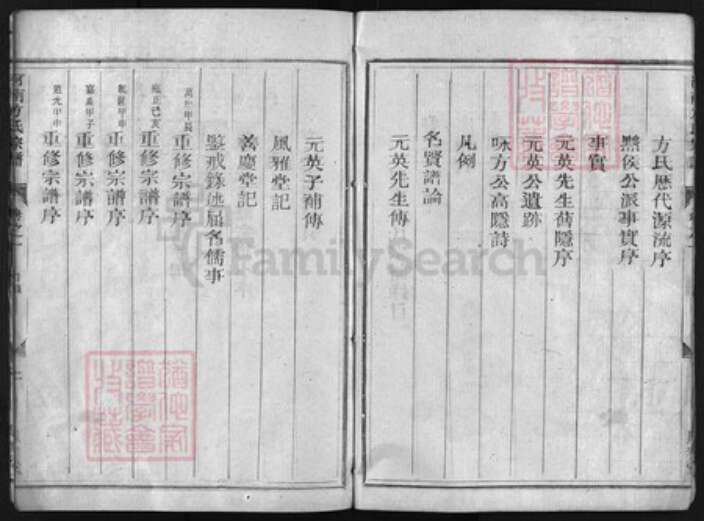 方氏歷代源流序
黟侯公派事實序
事實
元英先生舊隱序
元英公遺跡
咏方公高隱詩
凡例
名賢譜論
元英先生傳
元英子補傳
風雅堂記
善慶堂記
鑒戒錄述屈名儒事
萬曆甲辰重修宗譜序
雍正己亥重修宗譜序
乾隆甲申重修宗譜序
嘉慶甲子重修宗譜序
道光甲申重修宗譜序
河南方氏宗譜
FamilySearch